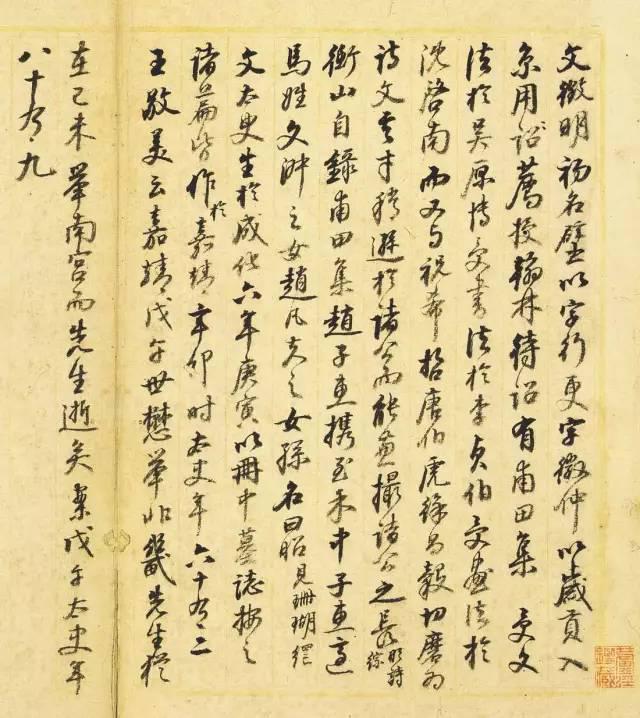 文徵明初名壁以字行更字徵仲以歲貢入
京用詔薦授翰林待詔有甫田集 受文
法於吴原博受書法於李貞伯受畫法於
沈啓南而又与祝希哲唐伯虎徐昌穀切磨为
诗文其才稍遜於諸公而能兼撮諸公之長明詩綜
衡山自錄甫田集趙子惠携至禾中子惠適
馬姓文俶之女趙凡夫之女孫名曰昭見珊瑚網
文太史生於成化六年庚寅以冊中墓誌按之
諸篇皆作於嘉靖辛卯时太史年六十有二
王敬美云嘉靖戊午世懋舉北畿先生於
在己未舉南宮而先生逝矣案戊午太史年
八十有九